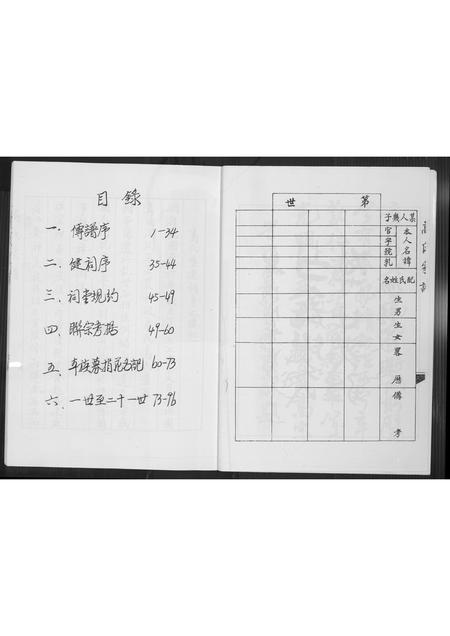 目錄
一. 傳譜序 1-34
二. 健祠序 35-44
三. 祠堂规约 45-49
四. 聯宗考據 49-60
五. 本族募捐花名記 60-73
六. 一世至二十一世 73-96
世 第
子幾人某
本人名諱
官 字 號 乳
名姓氏配
生男
生女
畧歷
備考